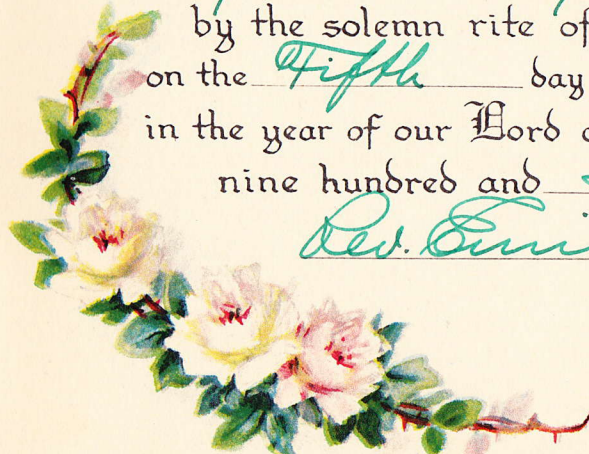 by the solemn rite of
on the Fifth day
in the year of our Lord
nine hundred and
Rev.